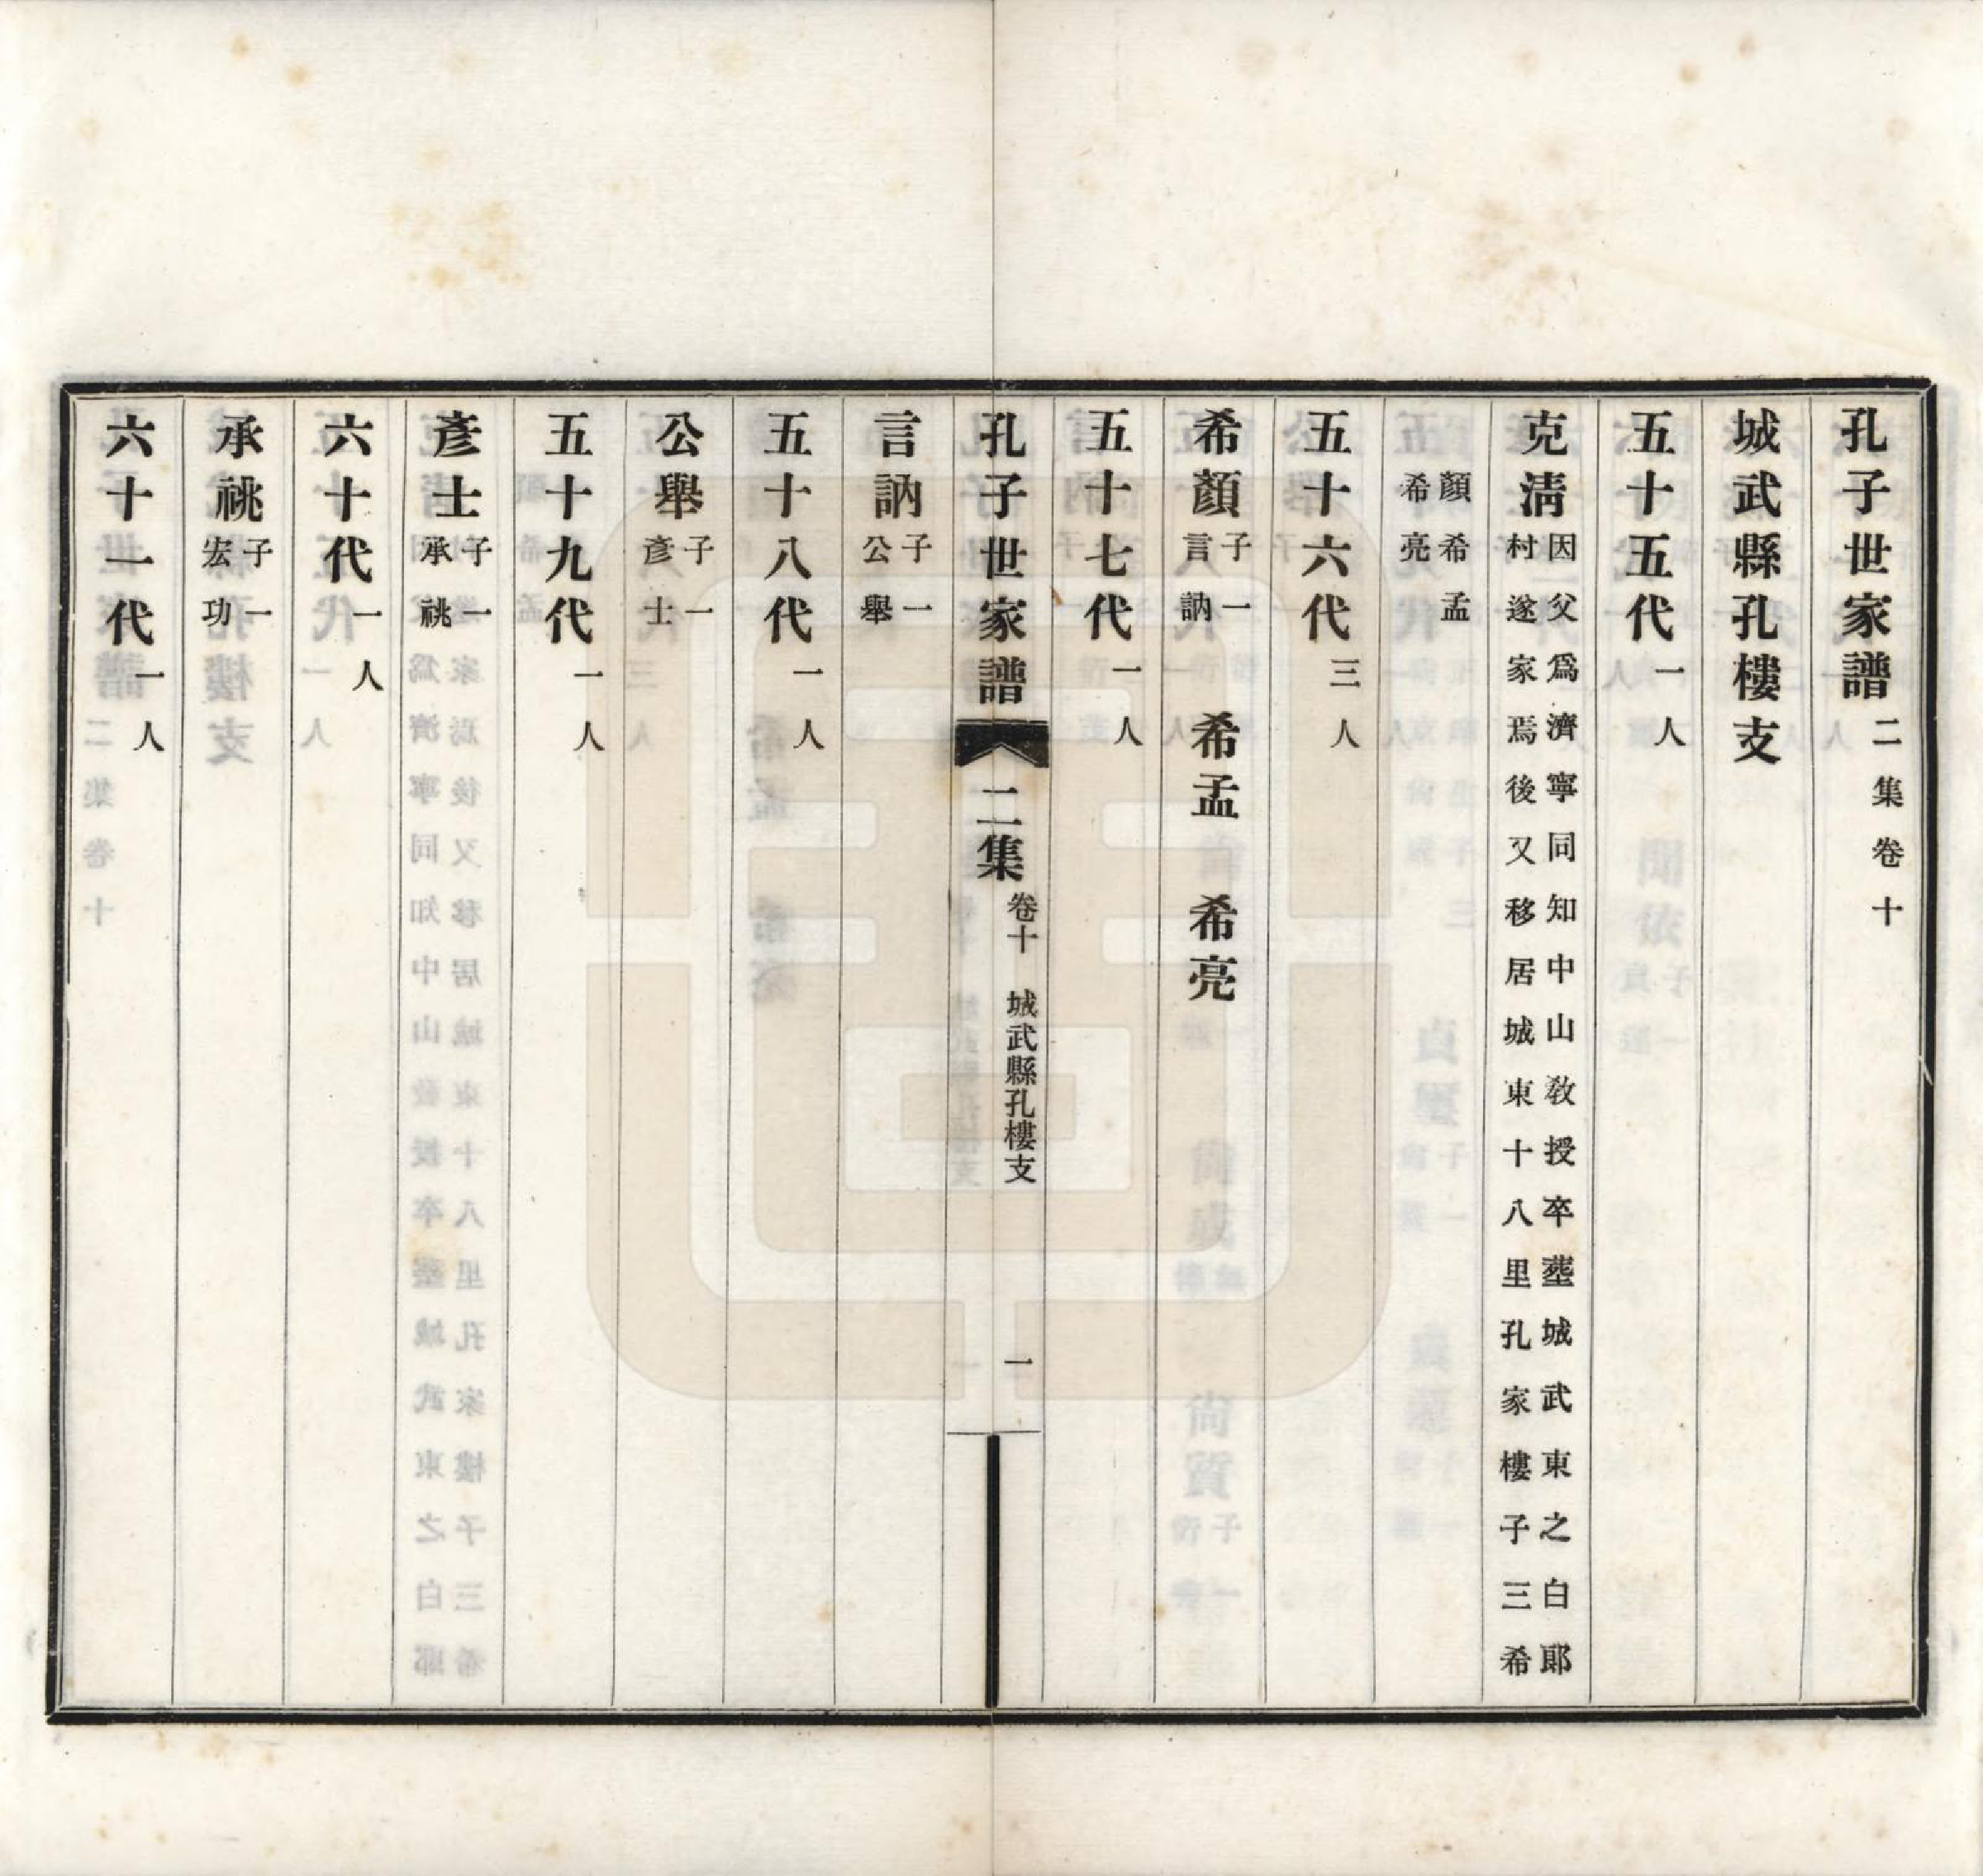 孔子世家譜二集卷十
城武縣孔樓支
五十五代一人
克淸因父爲濟寧同知中山敎授卒塟城武東之白郞
村遂家焉後又移居城東十八里孔家樓子三希
顏希孟
希亮
五十六代三人
希顏子一
言訥
希孟 希亮
五十七代一人
孔子世家譜 二集 卷十 城武縣孔樓支 一
言訥子一
公舉
五十八代一人
公舉子一
彥士
五十九代一人
彥士子一
承祧
六十代一人
承祧子一
宏功
六十一代一人